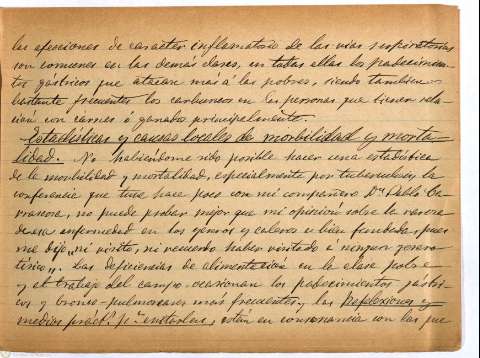 las afecciones de caracter inflamatorio de las vias respiratorias
son comunes en las demás clases, en todas ellas los padecimien-
tos gástricos que atacan más á las pobres, siendo tambien
bastante frecuentes los carbuncos en las personas que tienen rela-
ción con carnes ó ganados principalmente.
Estadísticas y causas locales de morbilidad y morta-
lidad. No haliendome sido posible hacer una estadística
de la morbilidad y mortalidad, especialmente por tuberculosis, la
conferencia que tuve hace poco con mi compañero Dn Pablo Ca-
rrascosa, no puede probar mejor que mi opinión sobre la rareza
de esa enfermedad en los y bien fundada, pues
me dijo "ni visito, ni recuerdo haber visitado á ningun
tísico". Las deficiencias de alimentación en la clase pobre
y el trabajo del campo, ocasionan los padecimientos gástri-
cos y bronco-pulmonares más frecuentes, y las Reflexiones y
medios práct.s pa evitarlas, están en consonancia con las que